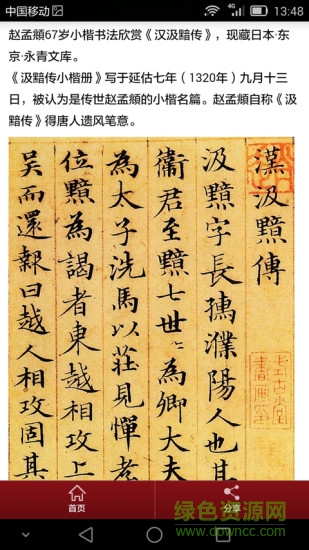 中国移动 13:48
赵孟頫67岁小楷书法欣赏《汉汲黯传》，现藏日本·东
京·永青文库。
《汲黯传小楷册》写于延估七年（1320年）九月十三
日，被认为是传世赵孟頫的小楷名篇。赵孟頫自称《汲
黯传》得唐人遗风笔意。
漢汲黯傳
汲黯字長孺濮陽人也其
衛君至黯七世〻為卿大夫
為太子洗馬以莊見憚孝
位黯為謁者東越相攻上
吳而還報曰越人相攻固其
首页
分享
绿色资源网
www.downcc.com